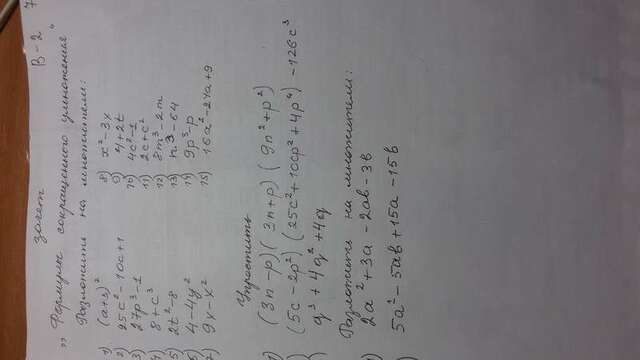 зачет В-2 7
„Формулы сокращенного умножения“
Разложить на множители:
1) (a+x)²
2) 25c²-10c+1
3) 27p³-1
4) 8+c³
5) 2t²-8
6) 4-4y²
7) 9x-x²
8) x²-3x
9) 4+2t
10) 4c²-1
11) 2c+c²
12) 8m³-2m
13) n³-64
14) 9p³-p
15) 16a²-24a+9
Упростить
(3n-p)(3n+p)(9n²+p²)
(5c-2p²)(25c²+10cp²+4p⁴)-126c³
q³+4q²+4q
Разложите на множители:
2a²+3a-2ab-3b
5a²-5ab+15a-15b